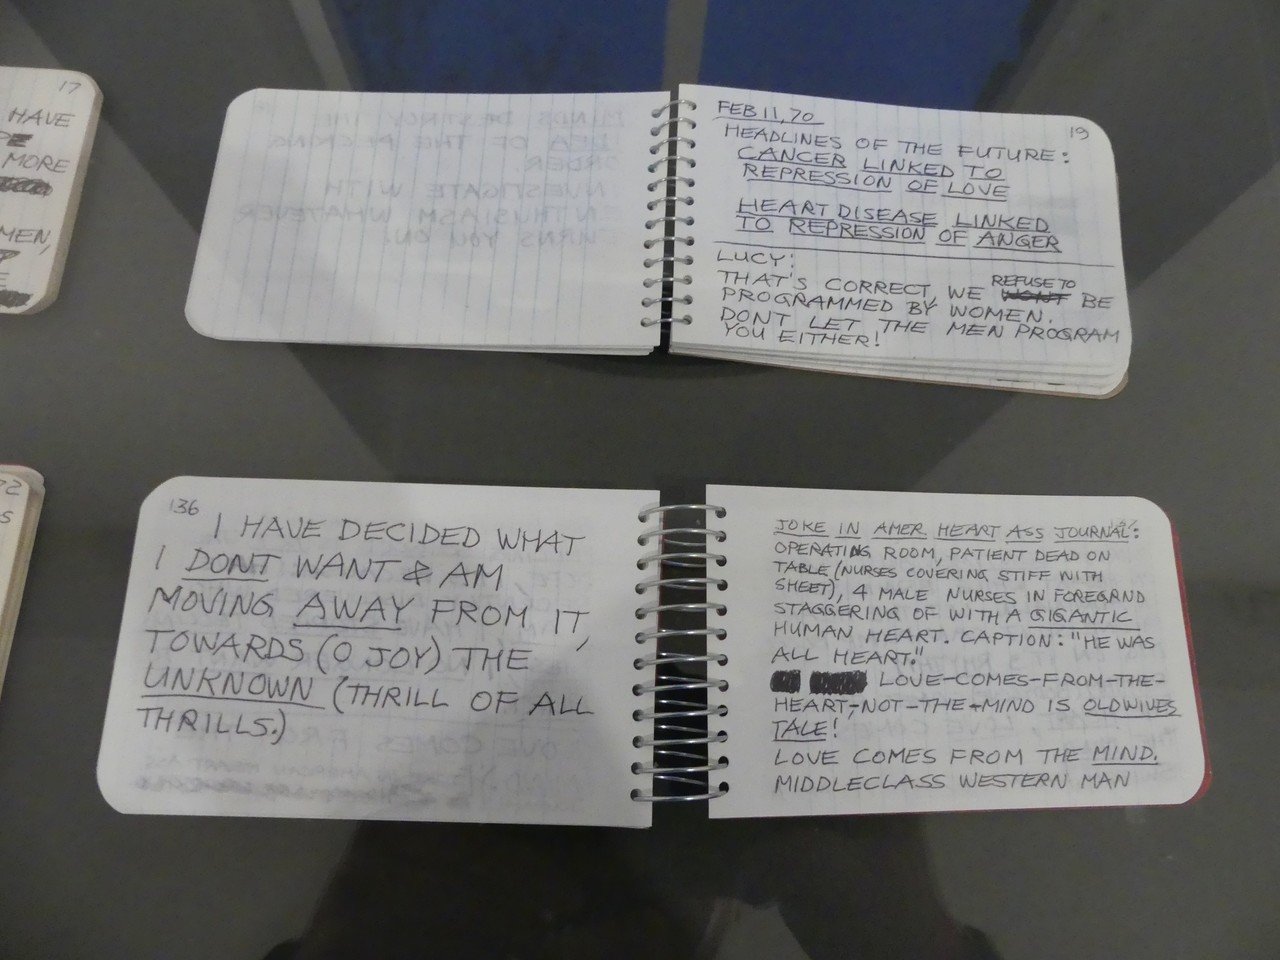 17
HAVE
MORE
MEN,
FEB 11, 70
19
HEADLINES OF THE FUTURE:
CANCER LINKED TO
REPRESSION OF LOVE
HEART DISEASE LINKED
TO REPRESSION OF ANGER
LUCY:
THAT'S CORRECT, WE REFUSE TO BE
PROGRAMMED BY WOMEN.
DONT LET THE MEN PROGRAM
YOU EITHER!
136
I HAVE DECIDED WHAT
I DONT WANT & AM
MOVING AWAY FROM IT,
TOWARDS (O JOY) THE
UNKNOWN (THRILL OF ALL
THRILLS.)
JOKE IN AMER HEART ASS JOURNAL:
OPERATING ROOM, PATIENT DEAD ON
TABLE (NURSES COVERING STIFF WITH
SHEET), 4 MALE NURSES IN FOREGRND
STAGGERING OF WITH A GIGANTIC
HUMAN HEART. CAPTION: "HE WAS
ALL HEART."
LOVE-COMES-FROM-THE-
HEART-NOT-THE-MIND IS OLDWIVES
TALE!
LOVE COMES FROM THE MIND.
MIDDLECLASS WESTERN MAN